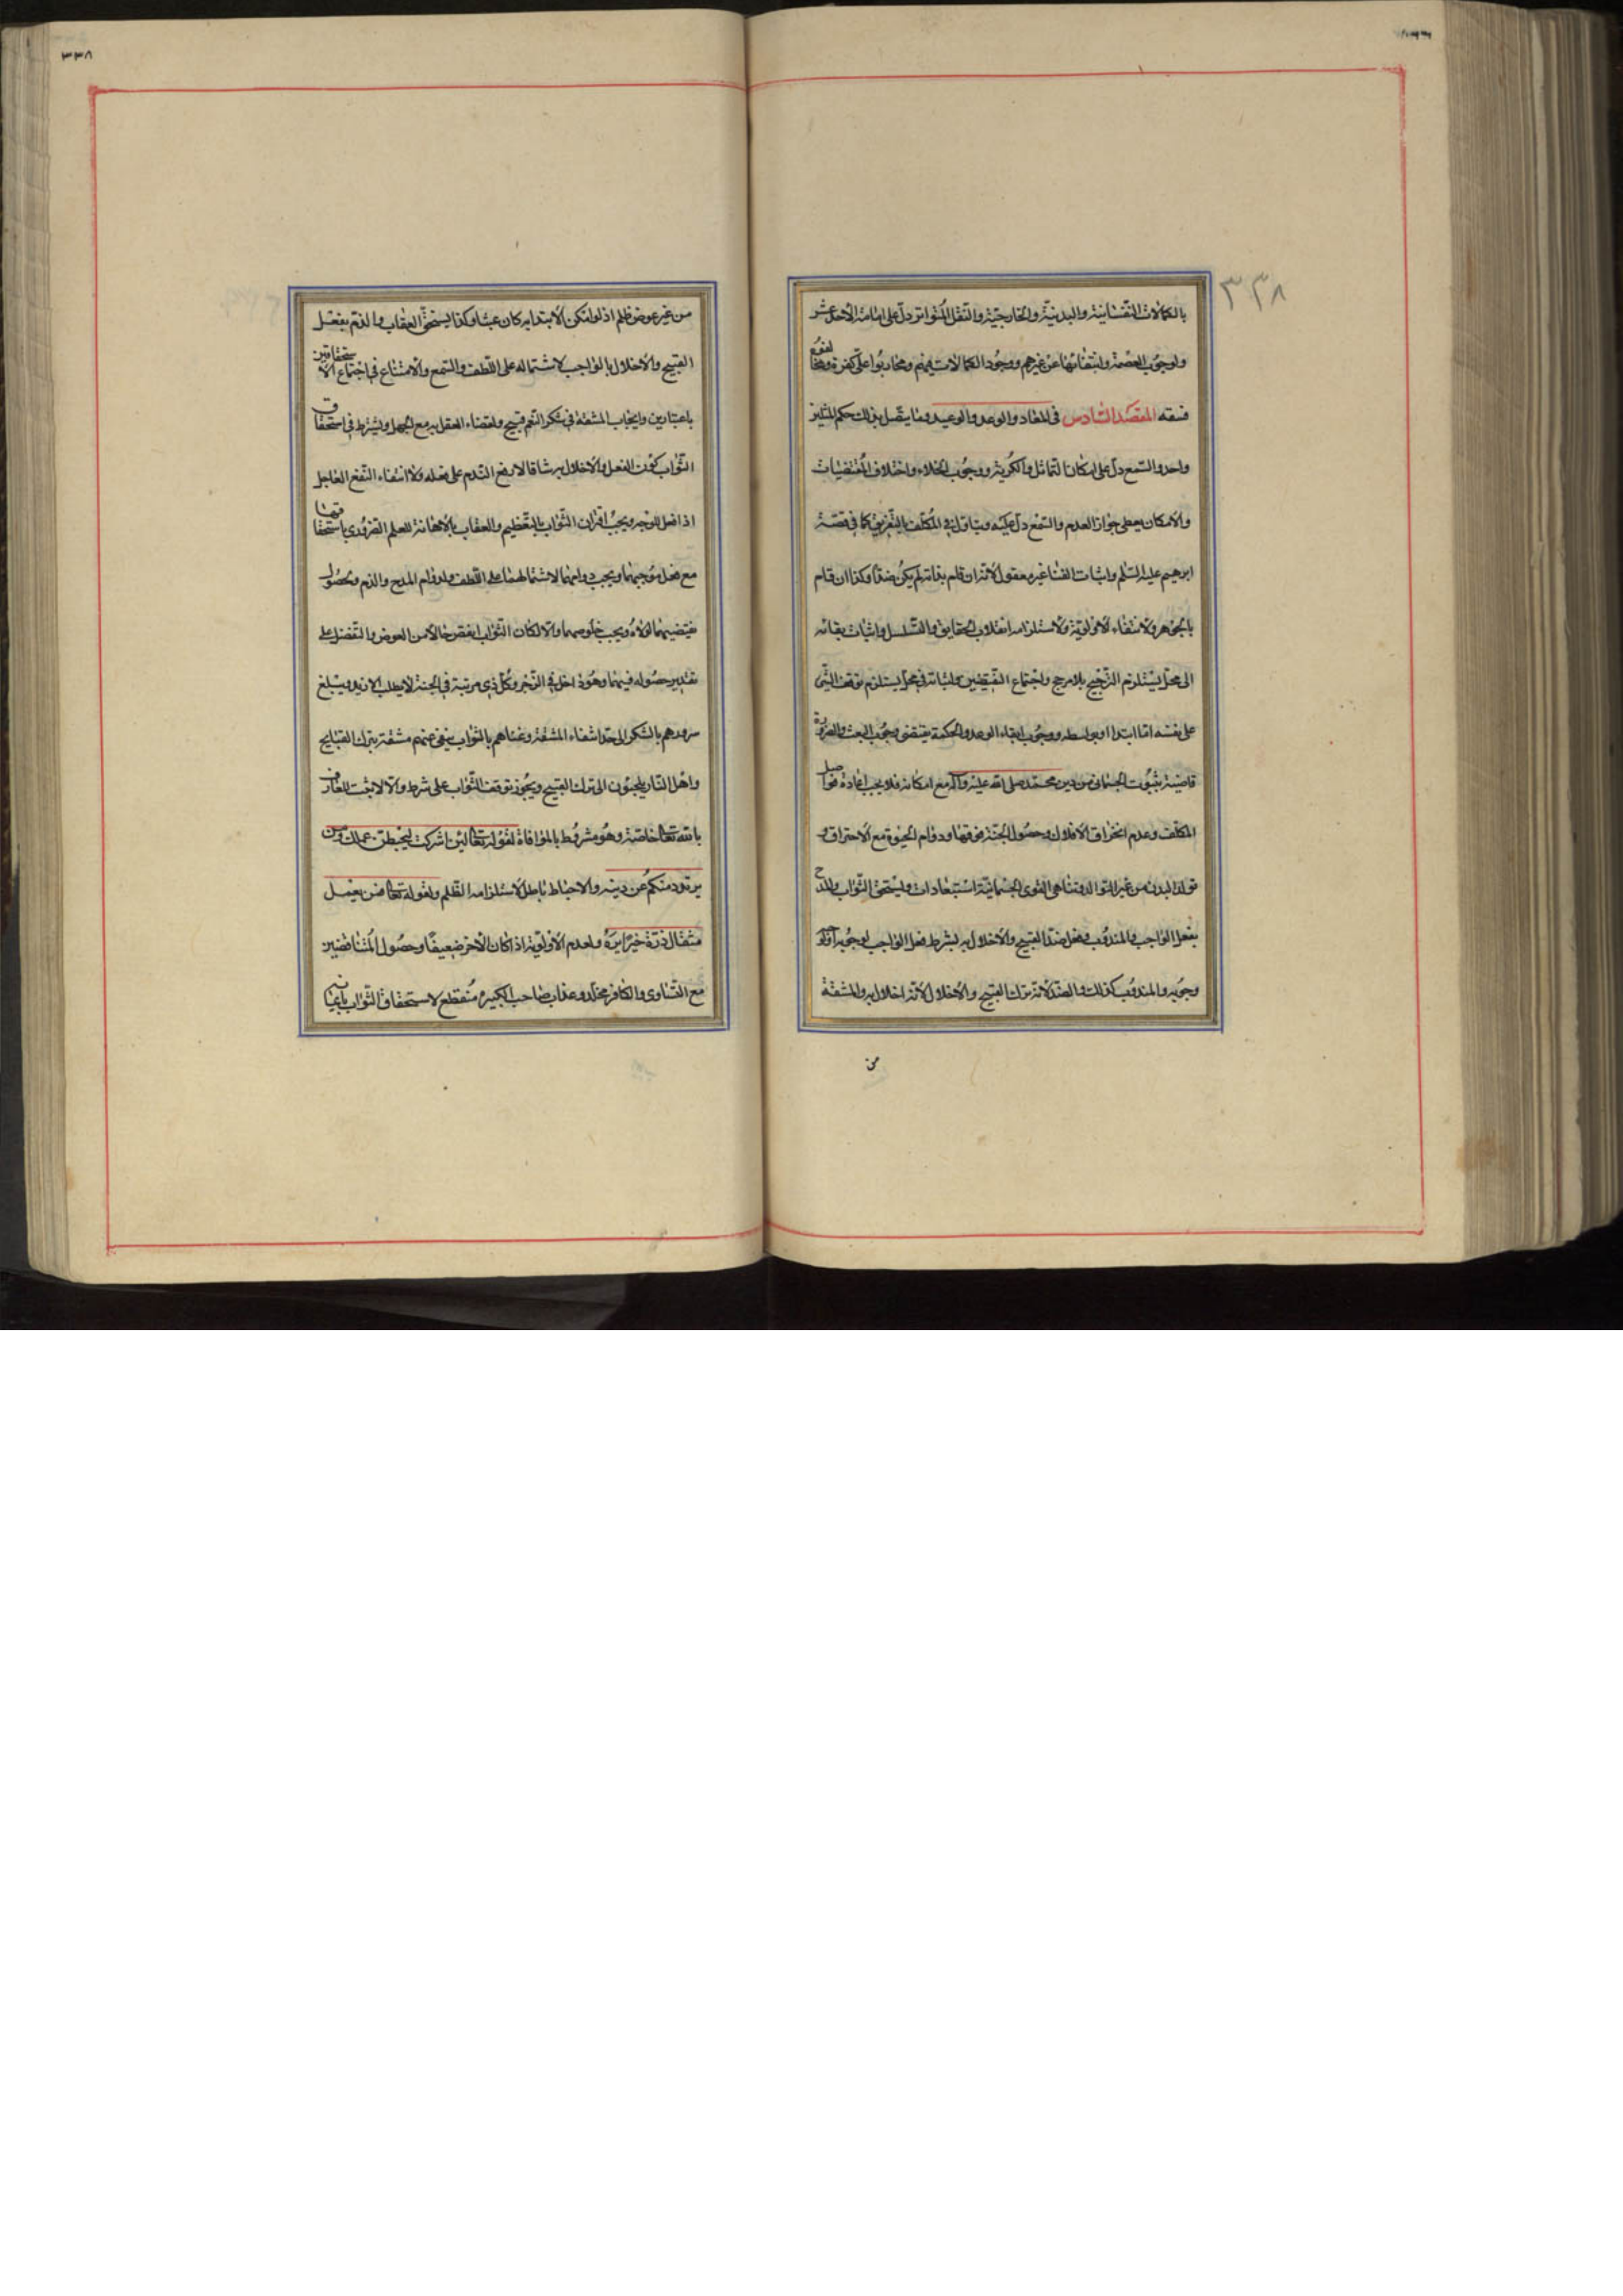 ٣٣٨
٣٣٨
بالكمالات النفسانية والبدنية والخارجية والنقل المتواتر دل على امامة الاحد عشر
ولوجوب العصمة وانتفائها عن غيرهم ووجود الكمالات فيهم ومحاربوا على كفرة ومخالفوه
فسقه المقصد السادس فى المعاد والوعد والوعيد وما يتصل بذلك حكم المثلين
واحد والسمع دل على امكان التماثل والكرية ووجوب الخلاء واختلاف المقتضيات
والامكان يعطى جواز العدم والسمع دل عليه ويتاول فى المكلف بالتفريق كما فى قصة
ابرهيم عليه السلم واثبات الفنا غير معقول لانه ان قام بذاته لم يكن ضدا وكذا ان قام
بالجوهر ولانتفاء الاولوية ولاستلزامه انقلاب الحقايق والتسلسل واثبات بقائه
الى محل يستلزم الترجيح بلامرجح واجتماع النقيضين واثباته فى محل يستلزم توقف الشئ
على نفسه اما ابتدا او بواسطه ووجوب ايفاء الوعد والحكمة يقتضى وجوب البعث والضرورة
قاضية بثبوت الجسمانى من دين محمد صلى الله عليه وآله مع امكانه فلا يجب اعادة فواصل
المكلف وعدم انخراق الافلاك وحصول الجنة فوقها ودوام الحيوة مع الاحتراق و
تولد البدن من غير التوالد وتناهى القوى الجسمانية استبعادات ويستحق الثواب والمدح
بفعل الواجب والمندوب وفعل ضد القبيح والاخلال به بشرط فعل الواجب لوجوبه او لوجه
وجوبه والمندوب كذلك والضد لانه ترك القبيح والاخلال لانه اخلال به والمشقة
من
من غير عوض ظلم اذ لو امكن الابتدا به كان عبثا وكذا يستحق العقاب والذم بفعل
القبيح والاخلال بالواجب لاشتماله على اللطف والسمع ولا امتناع فى اجتماع الاستحقاقين
باعتبارين وايجاب المشقة فى شكر النعم قبيح ولقضاء العقل به مع الجهل ويشترط فى استحقاق
الثواب كون الفعل والاخلال به شاقا لا رفع الندم على فعله ولا انتفاء النفع العاجل
اذا فعل للوجه ويجب اقتران الثواب بالتعظيم والعقاب بالاهانة للعلم الضرورى باستحقاقهما
مع فعل موجبهما ويجب دوامهما لاشتمالهما على اللطف ولدوام المدح والذم ولحصول
نقيضيهما لولاه ويجب خلوصهما والا لكان الثواب انقص حالا من العوض والتفضل على
تقدير حصوله فيهما وهو ادخل فى الزجر وكل ذى مرتبة فى الجنة لا يطلب الازيد ويبلغ
سرورهم بالشكر الى حد انتفاء المشقة وغناهم بالثواب ينفى عنهم مشقة ترك القبايح
واهل النار يلجئون الى ترك القبيح ويجوز توقف الثواب على شرط والا لاثيب العارف
بالله تعالى خاصة وهو مشروط بالموافاة لقوله تعالى لئن اشركت ليحبطن عملك ومن
يرتدد منكم عن دينه والاحباط باطل لاستلزامه الظلم ولقوله تعالى فمن يعمل
مثقال ذرة خيرا يره ولعدم الاولوية اذا كان الآخر ضعيفا وحصول المتناقضين
مع التساوى والكافر مخلد وعذاب صاحب الكبيرة منقطع لاستحقاق الثواب بايمانه